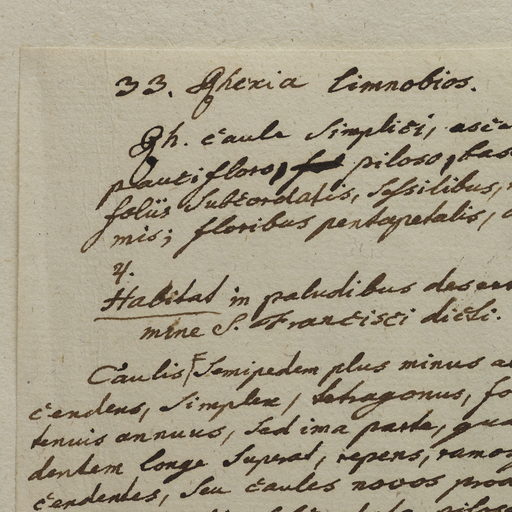 33. Rhexia limnobios.
Rh. caule simplici, asce
paucifloro, piloso, bas
foliis subcordatis, sessilibus,
mis; floribus pentapetalis,
4.
Habitat in paludibus deser
mine S. Francisci dicti.
Caulis semipedem plus minus a
cendens, simplex, tetragonus, fo
tenuis annuus, sed ima parte, qua
dentem longe superat, repens, ramos
cendentes, seu caules novos pro